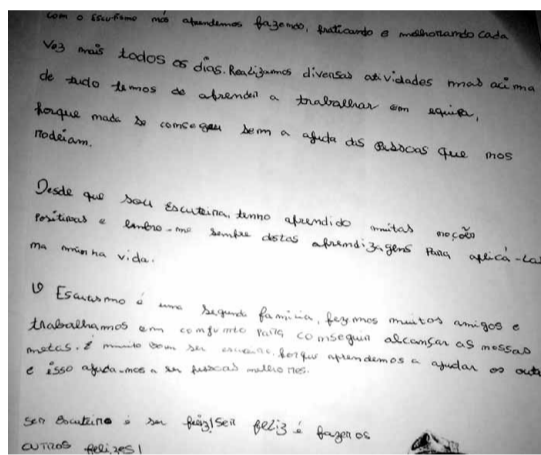 com o Escutismo nós aprendemos fazendo, praticando e melhorando cada
vez mais todos os dias. Realizamos diversas atividades mas acima
de tudo temos de aprender a trabalhar em equipa,
porque nada se consegue sem a ajuda das pessoas que nos
rodeiam.
Desde que sou Escuteira, tenho aprendido muitas
positivas e lembro-me sempre destas aprendizagens para aplicá-las
na minha vida.
O Escutismo é uma segunda família, fazemos muitos amigos e
trabalhamos em conjunto para conseguir alcançar as nossas
metas. É muito bom ser porque aprendemos a ajudar os
e isso ajuda-nos a ser pessoas melhores.
Ser Escuteiro é ser feliz! Ser feliz é fazer os
outros felizes!